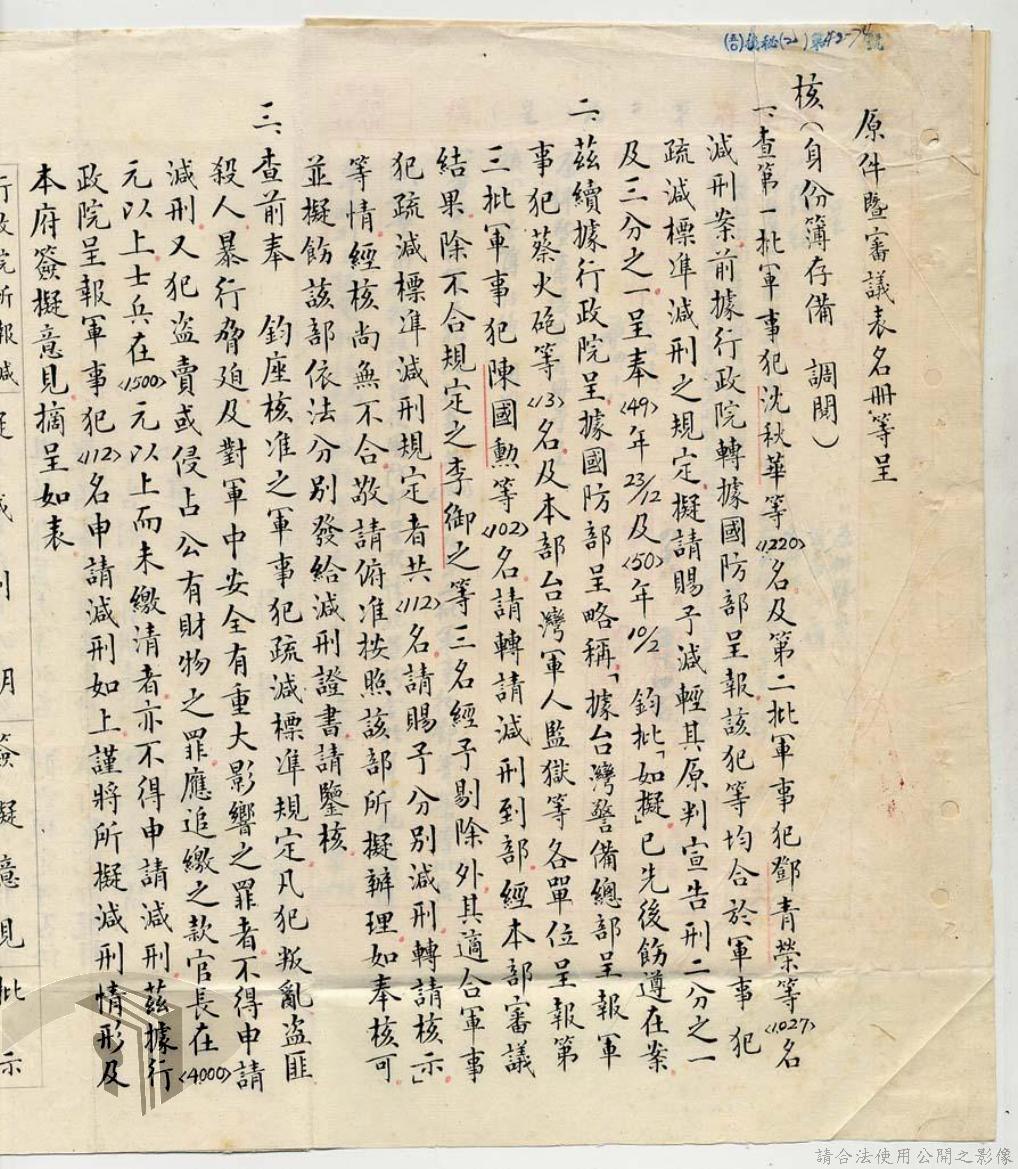 原件暨審議表名冊等呈
核（身份簿存備　調閱）
一、查第一批軍事犯沈秋華等<1220>名及第二批軍事犯鄧青榮等<1027>名
減刑案前據行政院轉據國防部呈報該犯等均合於軍事犯
疏減標準減刑之規定擬請賜予減輕其原判宣告刑二分之一
及三分之一呈奉<49>年23/12及<50>年10/2　鈞批「如擬」已先後飭遵在案
二、茲續據行政院呈據國防部呈略稱「據台灣警備總部呈報軍
事犯蔡火砲等<13>名及本部台灣軍人監獄等各單位呈報第
三批軍事犯陳國勲等<102>名請轉請減刑到部經本部審議
結果除不合規定之李御之等三名經予剔除外其適合軍事
犯疏減標準減刑規定者共<112>名請賜予分別減刑轉請核示」
等情經核尚無不合敬請俯准按照該部所擬辦理如奉核可
並擬飭該部依法分別發給減刑證書請鑒核
三、查前奉　鈞座核准之軍事犯疏減標準規定凡犯叛亂盜匪
殺人暴行脅迫及對軍中安全有重大影響之罪者不得申請
減刑又犯盜賣或侵占公有財物之罪應追繳之款官長在<4000>
元以上士兵在<1500>元以上而未繳清者亦不得申請減刑茲據行
政院呈報軍事犯<112>名申請減刑如上謹將所擬減刑情形及
本府簽擬意見摘呈如表
簽擬意見
批示
請合法使用公開之影像